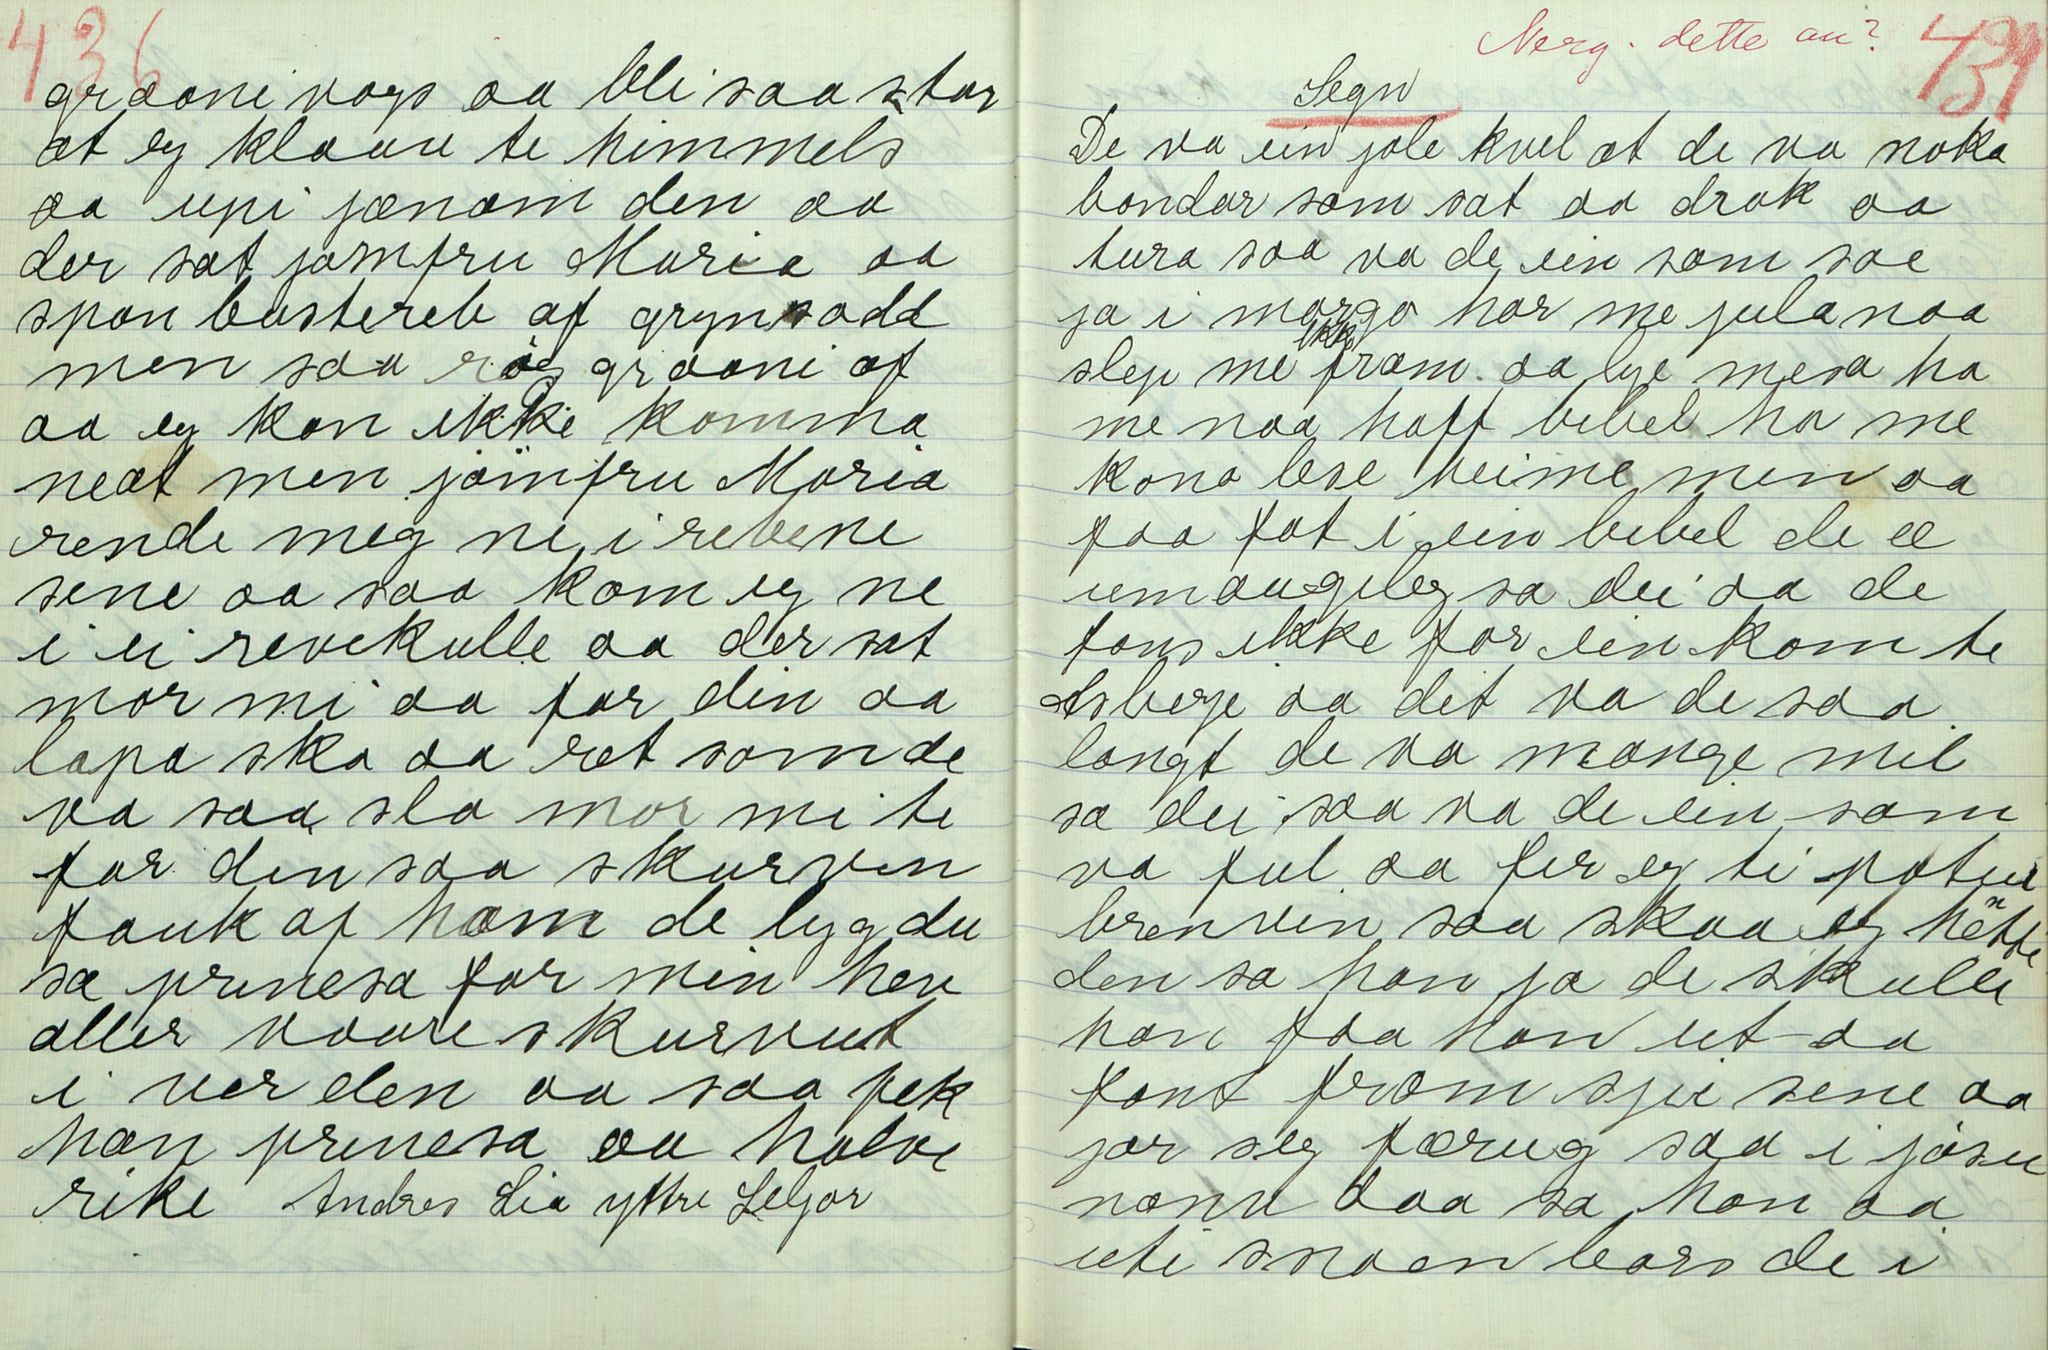 436
graani vogs aa bli saa stor
at eg klaau te himmels
aa upi jænom den aa
der sat jomfru Maria aa
spon bustereb af grynsodd
men saa røg graani af
aa eg kon ikke komma
neat men jomfru Maria
rende meg ne i rebene
sene aa saa kom eg ne
i ei revekulle aa der sat
mor mi aa far din aa
lapa ska aa ret som de
va saa sla mor mi te
far din saa skurven
fauk af ham de lyg du
sa prinesa far min hev
aller vaare skurvut
i verden aa saa fek
han prinesa aa halve
rike Andres Lia yttre Seljor
Nerg. dette au?
437
Segn
De va ein jole kvel at de va noka
bondar som sat aa drak aa
tura saa va de ein som sae
ja i morgo har me jula naa
slep me ikke fram aa lye mesa ha
me naa haft bibel ha me
kona lese heime men aa
faa fat i ein bibel de æ
umaugeleg sa dei aa de
fans ikke for ein kom te
Asberge aa dit va de saa
langt de va mange mil
sa dei saa va de ein som
va ful aa fer eg ti potue
brenven saa skaa eg hette
den sa han ja de skulle
han faa han ut aa
fant fram sjie sene aa
jor seg færug saa i jøsu
namn daa sa han aa
uti snoen bars de i